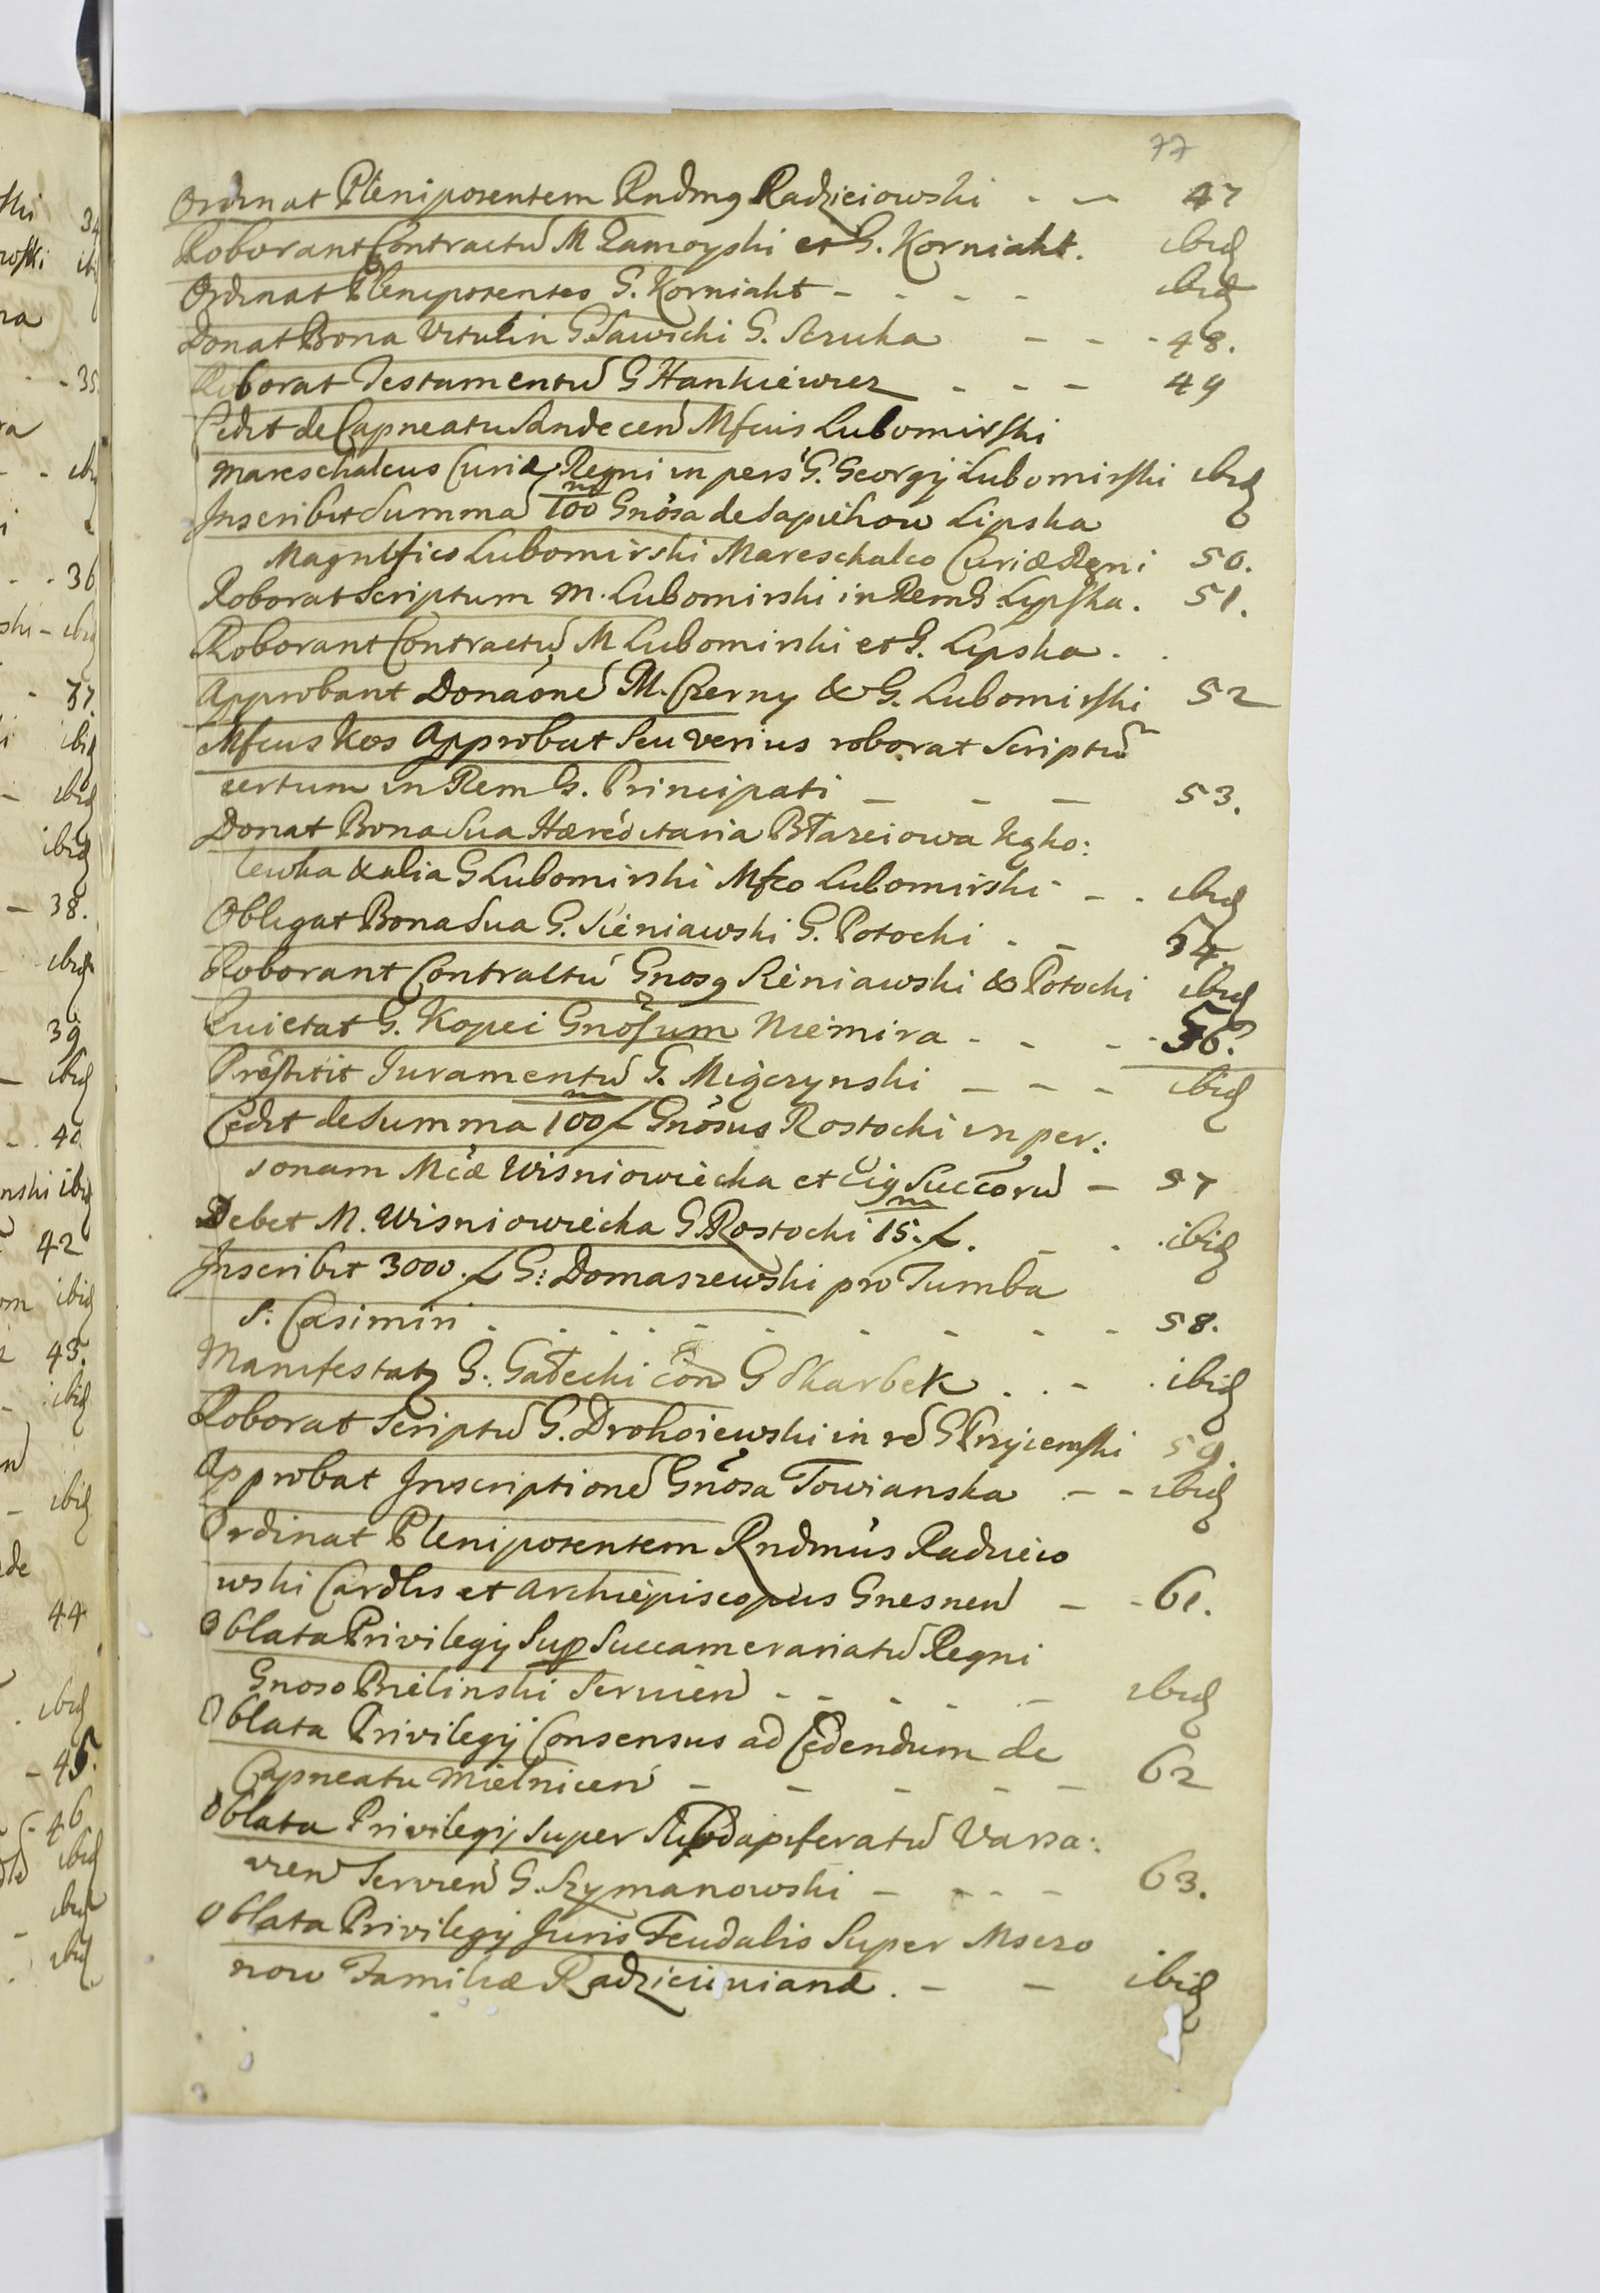 77
Ordinat Plenipotentem Rndmg Radzieiowski - - 47
Roborant Contractũ M Zamoyski et G. Korniakt. ibid
Ordinat Plenipotentes G. Korniakt - - - - ibid
Donat Bona Vitulin G Sawicki G. Szuka - - - 48.
Roborat Testamentũ G Hankiewicz - - - 49
Cedit de Capneatu Sandecen̄ Mfcus Lubomirski
Mareschalcus Curiæ Regni in pers G. Georgij Lubomirski ibid
Inscribit Summã 100 m Gnosa de Sapiehow Lipska
Magnifico Lubomirski Mareschalco Curiæ Regni 50.
Roborat Scriptum M. Lubomirski in Rem G Lypska. 51.
Roborant Contractũ M Lubomirski et G. Lipska. .
Approbant Donaóne M. Czerny & G. Lubomirski 52
Mfcus Kos Approbat Seu verius roborat Scriptũ
certum in Rem G. Principati - - - 53.
Donat Bona Sua Hæreditaria Błazeiowa Kąko:
lewka & alia G Lubomirski Mfco Lubomirski - - ibid
Obligat Bona Sua G. Sieniawski G. Potocki . - 54.
Roborant Contractũ Gnosg Sieniawski & Potocki ibid
Quietat G. Kopei Gnosum Niemira - - - 56.
Præstitit Juramentũ G. Miączynski - - - ibid
Cedit de Summa 100 m f Gnosus Rostocki in per:
sonam Mcæ Wisniowiecka et Eig Succorũ - 57
Debet M. Wisniowiecka G Rostocki 15. m f. - - ibid
Inscribit 3000. f G: Domaszewski pro Tumba
S: Casimiri - - - - - - - - - 58.
Manifestatg G. Gałecki con̄ G Skarbek . . - . ibid
Roborat Scriptũ G. Drohoiewski in rẽ G Przyiemski 59.
Approbat Inscriptionẽ Gnosa Towianska - - ibid
Ordinat Plenipotentem Rndmus Radzieio
wski Cardlis et Archiepiscopus Gnesnen̄ - - 61.
Oblata Privilegij Sup Succamerariatũ Regni
Gnoso Bielinski Servien̄ - - - - - ibid
Oblata Privilegij Consensus ad Cedendum de
Capneatu Mielnicen̄ - - - - - 62
Oblata Privilegij Super Subdapiferatũ Varsa:
vien̄ Servien̄ G. Szymanowski - - - - 63.
Oblata Privilegij Juris Feudalis Super Mszczo
now Familiæ Radzieiuvianæ. - - ibid